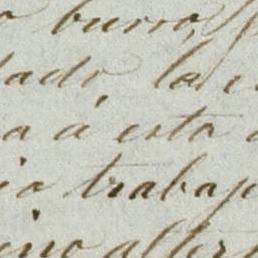 o burro, f
dado la
a á esta
io trabaj
ino alter